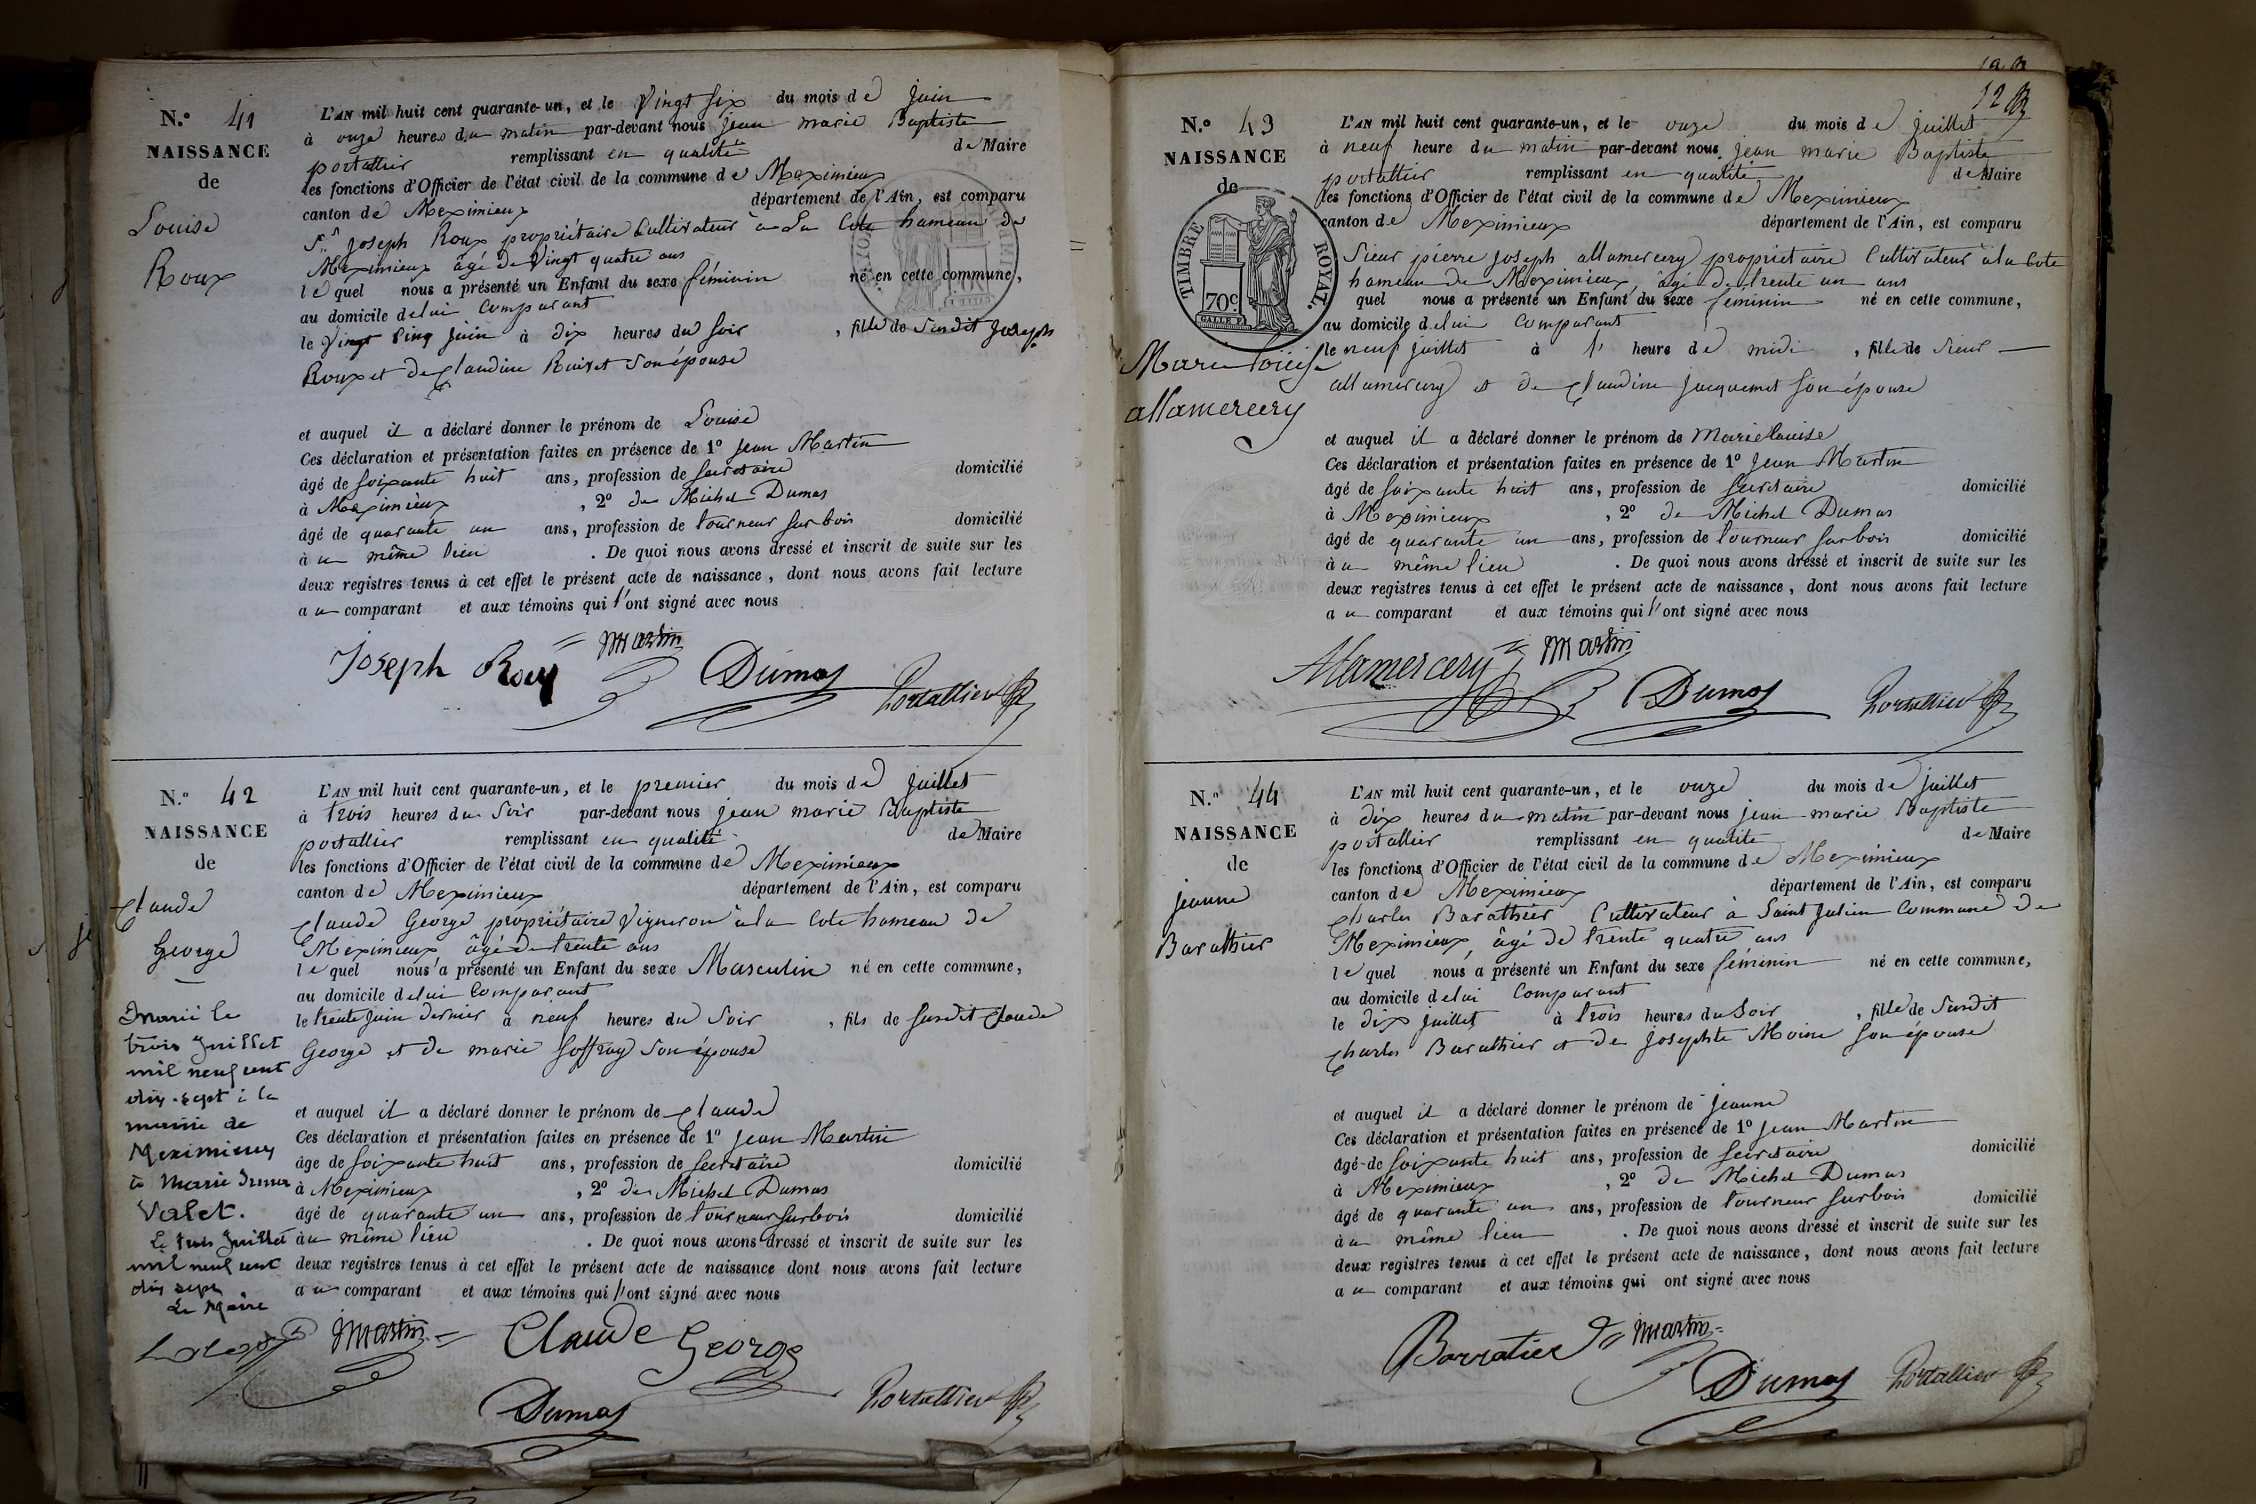 N.o 41
NAISSANCE
de
Louise
Roux
L'AN mil huit cent quarante-un, et le Vingt six du mois de juin
à onze heures du matin par-devant nous jean marie Baptiste
portallier remplissant en qualité de Maire
les fonctions d'Officier de l'état civil de la commune de Meximieux
canton de Meximieux département de l'Ain, est comparu
Sr. Joseph Roux propriétaire Cultivateur à La Cote hameau de
Meximieux âgé de Vingt quatre ans
lequel nous a présenté un Enfant du sexe féminin né en cette commune,
au domicile de lui Comparant
le Vingt Cinq juin à dix heures du soir, fille de Susdit Joseph
Roux et de Claudine son épouse
et auquel il a déclaré donner le prénom de Louise
Ces déclaration et présentation faites en présence de 1o Jean Martin
âgé de soixante huit ans, profession de secretaire domicilié
à Meximieux, 2o de Michel Dumas
âgé de quarante un ans, profession de tourneur sur bois domicilié
à u même lieu. De quoi nous avons dressé et inscrit de suite sur les
deux registres tenus à cet effet le présent acte de naissance, dont nous avons fait lecture
a u comparant et aux témoins qui l'ont signé avec nous
Joseph Roux Martin Dumas Portallier
N.o 42
NAISSANCE
de
Claude
George
L'AN mil huit cent quarante-un, et le premier du mois de juillet
à trois heures du soir par-devant nous jean marie Baptiste
portallier remplissant en qualité de Maire
les fonctions d'Officier de l'état civil de la commune de Meximieux
canton de Meximieux département de l'Ain, est comparu
Claude George propriétaire Vigneron à la Cote hameau de
Meximieux âgé de trente ans
lequel nous a présenté un Enfant du sexe Masculin né en cette commune,
au domicile de lui Comparant
le trente juin dernier à neuf heures du soir, fils de susdit Claude
George et de marie Joffray son épouse
et auquel il a déclaré donner le prénom de Claude
Ces déclaration et présentation faites en présence de 1o Jean Martin
âge de soixante huit ans, profession de secretaire domicilié
à Meximieux, 2o de Michel Dumas
âgé de quarante un ans, profession de tourneur sur bois domicilié
à u même lieu. De quoi nous avons dressé et inscrit de suite sur les
deux registres tenus à cet effet le présent acte de naissance dont nous avons fait lecture
a u comparant et aux témoins qui l'ont signé avec nous
Marié le
trois Juillet
mil neuf cent
dix-sept à la
mairie de
Meximieux
à Marie
Valet.
Le trois Juillet
mil neuf cent
dix sept
Le Maire
Martin Claude George
Dumas Portallier
12
N.o 43
NAISSANCE
de
TIMBRE ROYAL.
70c.
Marie louise
allamercery
L'AN mil huit cent quarante-un, et le onze du mois de juillet
à neuf heure du matin par-devant nous jean marie Baptiste
portallier remplissant en qualité de Maire
les fonctions d'Officier de l'état civil de la commune de Meximieux
canton de Meximieux département de l'Ain, est comparu
Sieur pierre joseph allamercery propriétaire Cultivateur à la Cote
hameau de Meximieux, âgé de trente un ans
quel nous a présenté un Enfant du sexe féminin né en cette commune,
au domicile de lui Comparant
le neuf juillet à 1 heure de midi, fille de sieur
allamercery et de Claudine Jacquemet son épouse
et auquel il a déclaré donner le prénom de Marie louise
Ces déclaration et présentation faites en présence de 1o Jean Martin
âgé de soixante huit ans, profession de secretaire domicilié
à Meximieux, 2o de Michel Dumas
âgé de quarante un ans, profession de tourneur sur bois domicilié
à u même lieu. De quoi nous avons dressé et inscrit de suite sur les
deux registres tenus à cet effet le présent acte de naissance, dont nous avons fait lecture
a u comparant et aux témoins qui l'ont signé avec nous
Allamercery Martin Dumas Portallier
N.o 44
NAISSANCE
de
jeanne
Barathier
L'AN mil huit cent quarante-un, et le onze du mois de juillet
à dix heures du matin par-devant nous jean marie Baptiste
portallier remplissant en qualité de Maire
les fonctions d'Officier de l'état civil de la commune de Meximieux
canton de Meximieux département de l'Ain, est comparu
Charles Barathier Cultivateur à Saint Julien Commune de
Meximieux, âgé de trente quatre ans
lequel nous a présenté un Enfant du sexe féminin né en cette commune,
au domicile de lui Comparant
le dix juillet à trois heures du soir, fille de susdit
Charles Barathier et de josephte Moine son épouse
et auquel il a déclaré donner le prénom de jeanne
Ces déclaration et présentation faites en présence de 1o jean Martin
âgé de soixante huit ans, profession de secretaire domicilié
à Meximieux, 2o de Michel Dumas
âgé de quarante un ans, profession de tourneur sur bois domicilié
à u même lieu. De quoi nous avons dressé et inscrit de suite sur les
deux registres tenus à cet effet le présent acte de naissance, dont nous avons fait lecture
a u comparant et aux témoins qui ont signé avec nous
Barratier Martin
Dumas Portallier